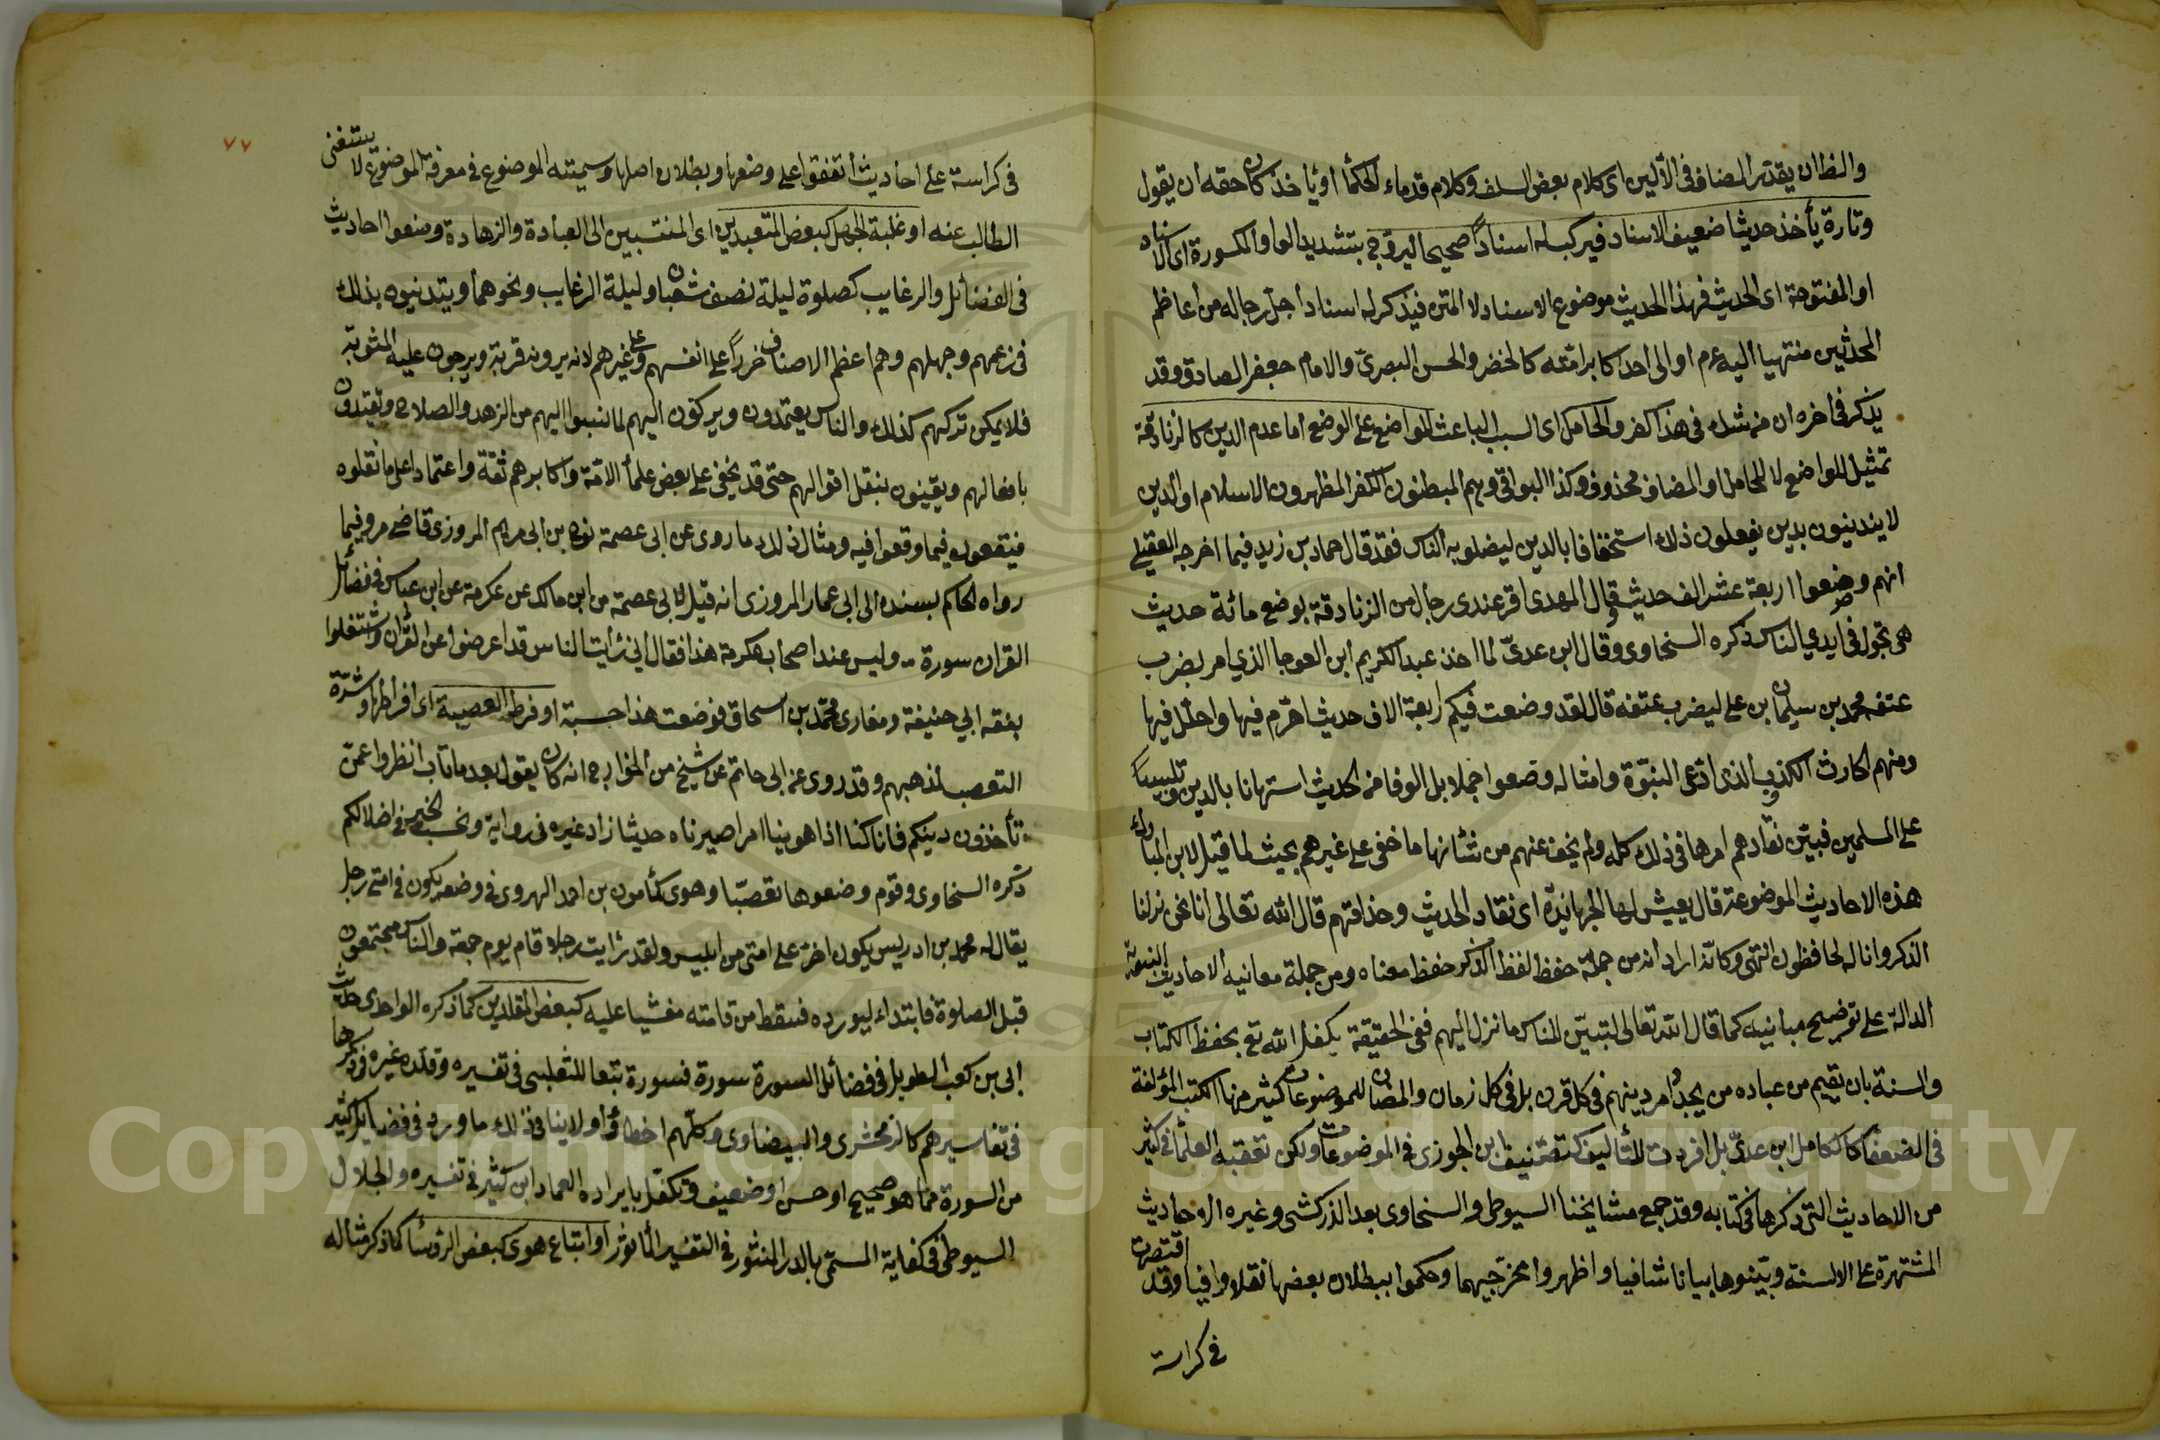 والظ ان يقدر المضاف في الأولين اى كلام بعض السلف وكلام قدماء الحكما او يأخذ كان حقه ان يقول
وتارة يأخذ حديثا ضعيف الاسناد فيركب له اسنادا صحيحا ليروج بتشديد الواو المكسورة اى الاسناد
او المفتوحة اى الحديث فهذا الحديث موضوع الاسناد لا المتن فيذكر له اسنادا اجل رجاله من اعاظم
المحدثين منتهيا اليه عم او الى احد اكابر امته كالخضر والحسن البصرى والامام جعفر الصادق وقد
يذكر في اخره ان من شك في هذا كفر والحامل اى السبب الباعث للواضع على الوضع اما عدم الدين كالزنادقة
تمثيل للواضع لا للحامل او المضاف محذوف وكذا البواقى وهم المبطنون الكفر المظهرون الاسلام او الذين
لا يتدينون بدين يفعلون ذلك استخفافا بالدين ليضلوا به الناس فقد قال حماد بن زيد فيما اخرجه العقيلى
انهم وضعوا اربعة عشر الف حديث وقال المهدى اقر عندى رجل من الزنادقة بوضع مائة حديث
هى تجول في ايدي الناس ذكره السخاوى وقال ابن عدى لما اخذ عبد الكريم ابن العوجا الذي امر بضرب
عنقه محمد بن سليمان بن على ليضرب عنقه قال لقد وضعت فيكم اربعة الاف حديث احرم فيها واحلل فيها
ومنهم الحارث الكذوب الذى ادعى النبوة وامثاله وضعوا جملا بل الوفا من الحديث استهانا بالدين وتلبيسا
على المسلمين فبين نقادهم امرها في ذلك كله ولم يخف عنهم من شانها ما خفى على غيرهم بحيث لما قيل لابن المبارك
هذه الاحاديث الموضوعة قال يعيش لها الجهابذة اى نقاد الحديث وحذاقهم قال الله تعالى انا نحن نزلنا
الذكر وانا له لحافظون انتهى وكانه اراد انه من جملة حفظ لفظ الذكر حفظ معناه ومن جملة معانيه الاحاديث النبوية
الدالة على توضيح مبانيه كما قال الله تعالى لتبين للناس ما نزل اليهم ففي الحقيقة تكفل الله تع بحفظ الكتاب
والسنة بان يقيم من عباده من يجدد امر دينهم في كل قرن بل في كل زمان والمضان للموضوعات كثير منها الكتب المؤلفة
في الضعفا كالكامل ابن عدى بل افردت للتأليف كتصنيف ابن الجوزى في الموضوعات ولكن تعقبه العلما في كثير
من الاحاديث التى ذكرها في كتابه وقد جمع مشايخنا السيوطى والسخاوى بعد الزركشى وغيره الاحاديث
المشتهرة على الالسنة وبينوها بيانا شافيا واظهروا مخرجيهما وحكموا ببطلان بعضها نقلا وافيا وقد اقتصرت
في كراسة
٧٧
في كراسة على احاديث اتفقوا على وضعها وبطلان اصلها وسميته الموضوع في معرفة الموضوع لا يستغنى
الطالب عنه او غلبة الجهل كبعض المتعبدين اى المنتسبين الى العبادة والزهادة وضعوا احاديث
في الفضائل والرغايب كصلوة ليلة نصف شعبان وليلة الرغايب ونحوهما ويتدينون بذلك
في زعمهم وجهلهم وهم اعظم الاصناف ضررا على انفسهم وعلى غيرهم لانه يرونه قربة ويرجون عليه المثوبة
فلا يمكن تركهم كذلك والناس يعتمدون ويركنون اليهم لما نسبوا اليهم من الزهد والصلاح ويقتدون
بافعالهم ويعتنون بنقل اقوالهم حتى قد يخفى على بعض علما الامة واكابرهم ثقة واعتمادا على ما نقلوه
فيقعون فيما وقعوا فيه ومثال ذلك ما روى عن ابى عصمة نوح بن ابى مريم المروزى قاضى مرو فيما
رواه الحاكم بسنده الى ابى عمار المروزى انه قيل لابى عصمة من اين لك عن عكرمة عن ابن عباس في فضائل
القران سورة سورة وليس عند اصحاب عكرمة هذا فقال انى رأيت الناس قد اعرضوا عن القران واشتغلوا
بفقه ابي حنيفة ومغازى محمد بن اسحاق فوضعت هذا حسبة او فرط العصبية اى افراطها وشدة
التعصب لمذهبهم وقد روى عن ابى حاتم عن شيخ من الخوارج انه كان يقول بعد ما تاب انظروا عمن
تأخذون دينكم فانا كنا اذا هوينا امرا صيرناه حديثا زاد غيره في رواية ونحتسب الخير في اضلالكم
ذكره السخاوى وقوم وضعوها تعصبا وهوى كمأمون بن احمد الهروى في وضعه يكون في امتى رجل
يقال له محمد بن ادريس يكون اضر على امتى من ابليس ولقد رايت رجلا قام يوم جمعة والناس مجتمعون
قبل الصلوة فابتداء ليورده فسقط من قامته مغشيا عليه كبعض المقلدين كما ذكره الواحدى حديث
ابى بن كعب الطويل في فضائل السورة سورة فسورة تبعا للثعلبى في تفسيره وقلده غيره فذكرها
في تفاسيرهم كالزمخشرى والبيضاوى وكلهم اخطاؤا ولا ينافى ذلك ما ورد في فضايل كثير
من السورة مما هو صحيح او حسن او ضعيف وتكفل بايراده العماد ابن كثير في تفسيره والجلال
السيوطى في كفاية المسمى بالدر المنثور في التفسير المأثور او اتباع هوى كبعض الرؤسا كما ذكر مثاله
Copyright © King Saud University